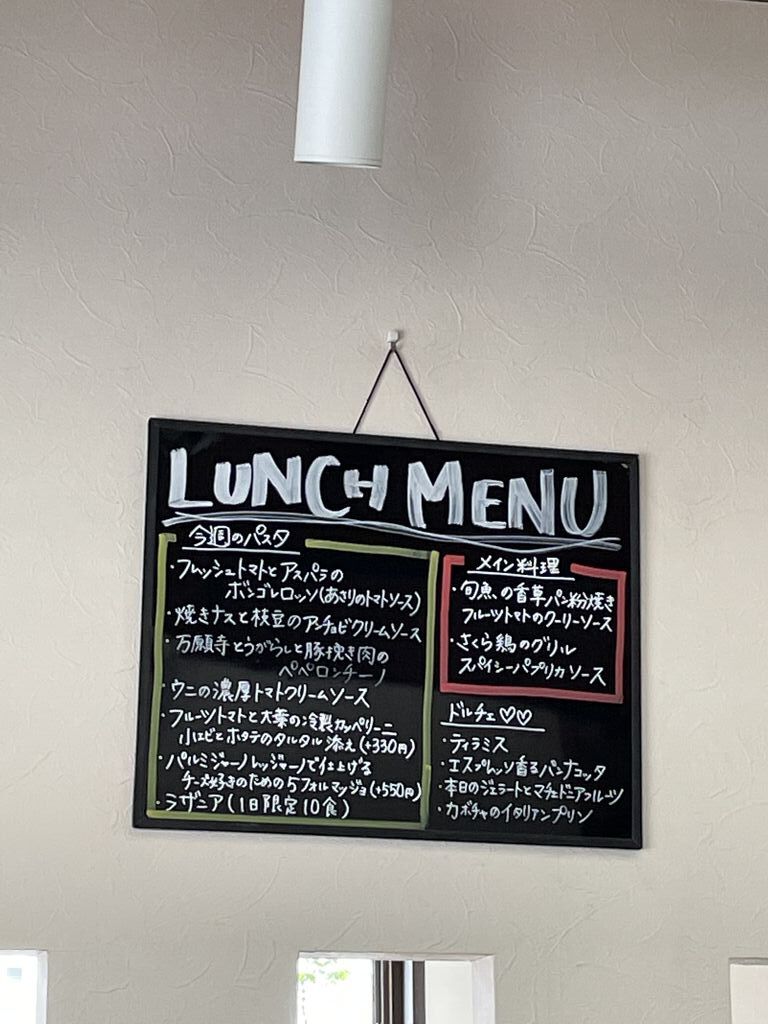 LUNCH MENU
今週のパスタ
・フレッシュトマトとアスパラの
ボンゴレロッソ(あさりのトマトソース)
・焼きナスと枝豆のアンチョビクリームソース
・万願寺とうがらしと豚挽き肉の
ペペロンチーノ
・ウニの濃厚トマトクリームソース
・フルーツトマトと大葉の冷製カッペリーニ
小エビとホタテのタルタル添え(+330円)
・パルミジャーノレッジャーノで仕上げる
チーズ好きのための5フォルマッジョ(+550円)
・ラザニア(1日限定10食)
メイン料理
・旬魚の香草パン粉焼き
フルーツトマトのクーリーソース
・さくら鶏のグリル
スパイシーパプリカソース
ドルチェ♡♡
・ティラミス
・エスプレッソ香るパンナコッタ
・本日のジェラートとマチェドニアフルーツ
・カボチャのイタリアンプリン